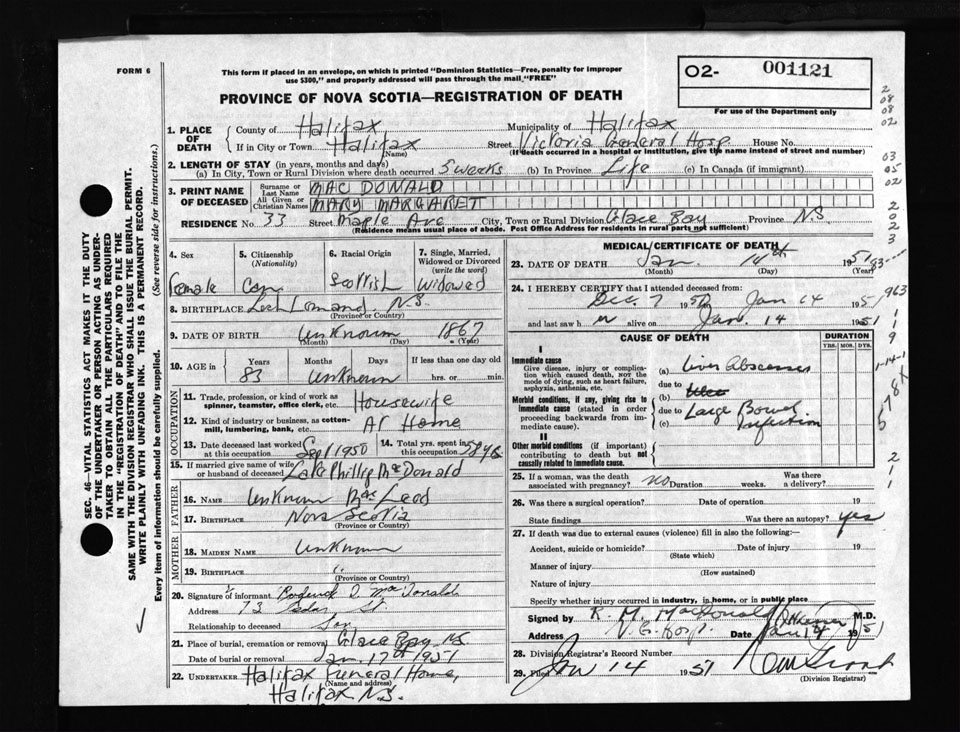 FORM 6
This form if placed in an envelope, on which is printed "Dominion Statistics—Free, penalty for improper
use $300," and properly addressed will pass through the mail "FREE"
O2- 001121
For use of the Department only
PROVINCE OF NOVA SCOTIA—REGISTRATION OF DEATH
1. PLACE OF DEATH County of Halifax Municipality of Halifax
If in City or Town Halifax (Name) Street Victoria General Hosp. House No.
(If death occurred in a hospital or institution, give the name instead of street and number)
2. LENGTH OF STAY (in years, months and days)
(a) In City, Town or Rural Division where death occurred 5 weeks (b) In Province Life (c) In Canada (if immigrant)
3. PRINT NAME OF DECEASED Surname or Last Name MAC DONALD
All Given or Christian Names MARY MARGARET
RESIDENCE No. 33 Street Maple Ave City, Town or Rural Division Glace Bay Province N.S.
(Residence means usual place of abode. Post Office Address for residents in rural parts not sufficient)
4. Sex Female
5. Citizenship (Nationality) Can
6. Racial Origin Scottish
7. Single, Married, Widowed or Divorced (write the word) Widowed
8. BIRTHPLACE Loch Lomand N.S. (Province or Country)
9. DATE OF BIRTH Unknown 1867 (Month) (Day) (Year)
10. AGE in Years 83 Months Unknown Days If less than one day old hrs. or min.
OCCUPATION
11. Trade, profession, or kind of work as spinner, teamster, office clerk, etc. Housewife
12. Kind of industry or business, as cotton-mill, lumbering, bank, etc. At Home
13. Date deceased last worked at this occupation Sept 1950 14. Total yrs. spent in this occupation
15. If married give name of wife or husband of deceased Late Phillip McDonald
FATHER
16. NAME Unknown MacLeod
17. BIRTHPLACE Nova Scotia (Province or Country)
MOTHER
18. MAIDEN NAME Unknown
19. BIRTHPLACE " (Province or Country)
20. Signature of informant Roderick D. MacDonald
Address 73 St
Relationship to deceased Son
21. Place of burial, cremation or removal Glace Bay NS
Date of burial or removal Jan. 17th 1951
22. UNDERTAKER Halifax Funeral Home,
(Name and address)
Halifax N.S.
MEDICAL CERTIFICATE OF DEATH
23. DATE OF DEATH Jan. 14th 1951
(Month) (Day) (Year)
24. I HEREBY CERTIFY that I attended deceased from:
Dec. 7 1950 Jan 14 1951
and last saw h er alive on Jan. 14 1951
CAUSE OF DEATH DURATION
YRS. MOS. DYS.
I
Immediate cause
Give disease, injury or complication which caused death, NOT the mode of dying, such as heart failure, asphyxia, asthenia, etc.
(a) Liver Abscesses
due to
Morbid conditions, if any, giving rise to immediate cause (stated in order proceeding backwards from immediate cause).
(b)
due to Large Bowel
(c) Infection
II
Other morbid conditions (if important) contributing to death but not causally related to immediate cause.
25. If a woman, was the death associated with pregnancy? no Duration weeks. Was there a delivery?
26. Was there a surgical operation? Date of operation 19
State findings Was there an autopsy? yes
27. If death was due to external causes (violence) fill in also the following:—
Accident, suicide or homicide? Date of injury 19
(State which)
Manner of injury
(How sustained)
Nature of injury
Specify whether injury occurred in industry, in home, or in public place
Signed by R. M. MacDonald M.D.
Address V. G. Hosp. Date Jan 14 1951
28. Division Registrar's Record Number
29. Filed Jan 14 1951
(Division Registrar)
SEC. 46—VITAL STATISTICS ACT MAKES IT THE DUTY
OF THE UNDERTAKER OR PERSON ACTING AS UNDER-
TAKER TO OBTAIN ALL THE PARTICULARS REQUIRED
IN THE "REGISTRATION OF DEATH" AND TO FILE THE
SAME WITH THE DIVISION REGISTRAR WHO SHALL ISSUE THE BURIAL PERMIT.
WRITE PLAINLY WITH UNFADING INK. THIS IS A PERMANENT RECORD.
Every item of information should be carefully supplied. (See reverse side for instructions.)